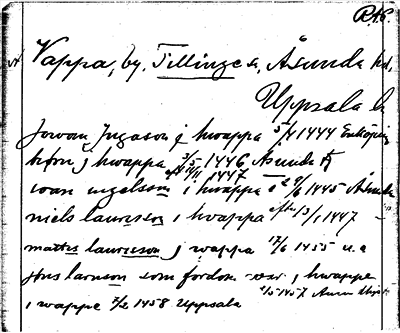 RA6.
Vappa, by, Tillinge s., Åsunda hd,
Uppsala l.
Jowan Jngason j hwappa 5/4 1444 Enköping
biörn j hwappa 3/5 1446 Åsunda
1447
ioan ingelsson i hwappa 1445 Åsunda
niels laurisson i hwappa efter 13/1 1447
mattes laurisson j wappa 17/6 1455 u.a
jöns larsson som fordom war j hwappe
1457
i wappe 7/2 1458 Uppsala